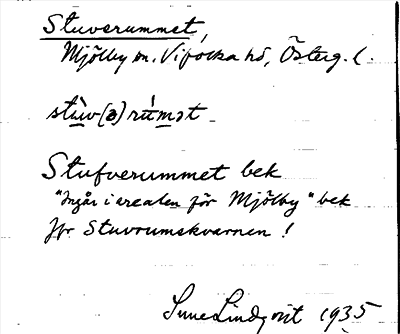 Stuverummet,
Mjölby sn. Vifolka hd, Österg. l.
stùv(ə)rúmət
Stufverummet bek
"Ingår i arealen för Mjölby" bek
Jfr Stuvrumskvarnen!
Sune Lindqvist 1935